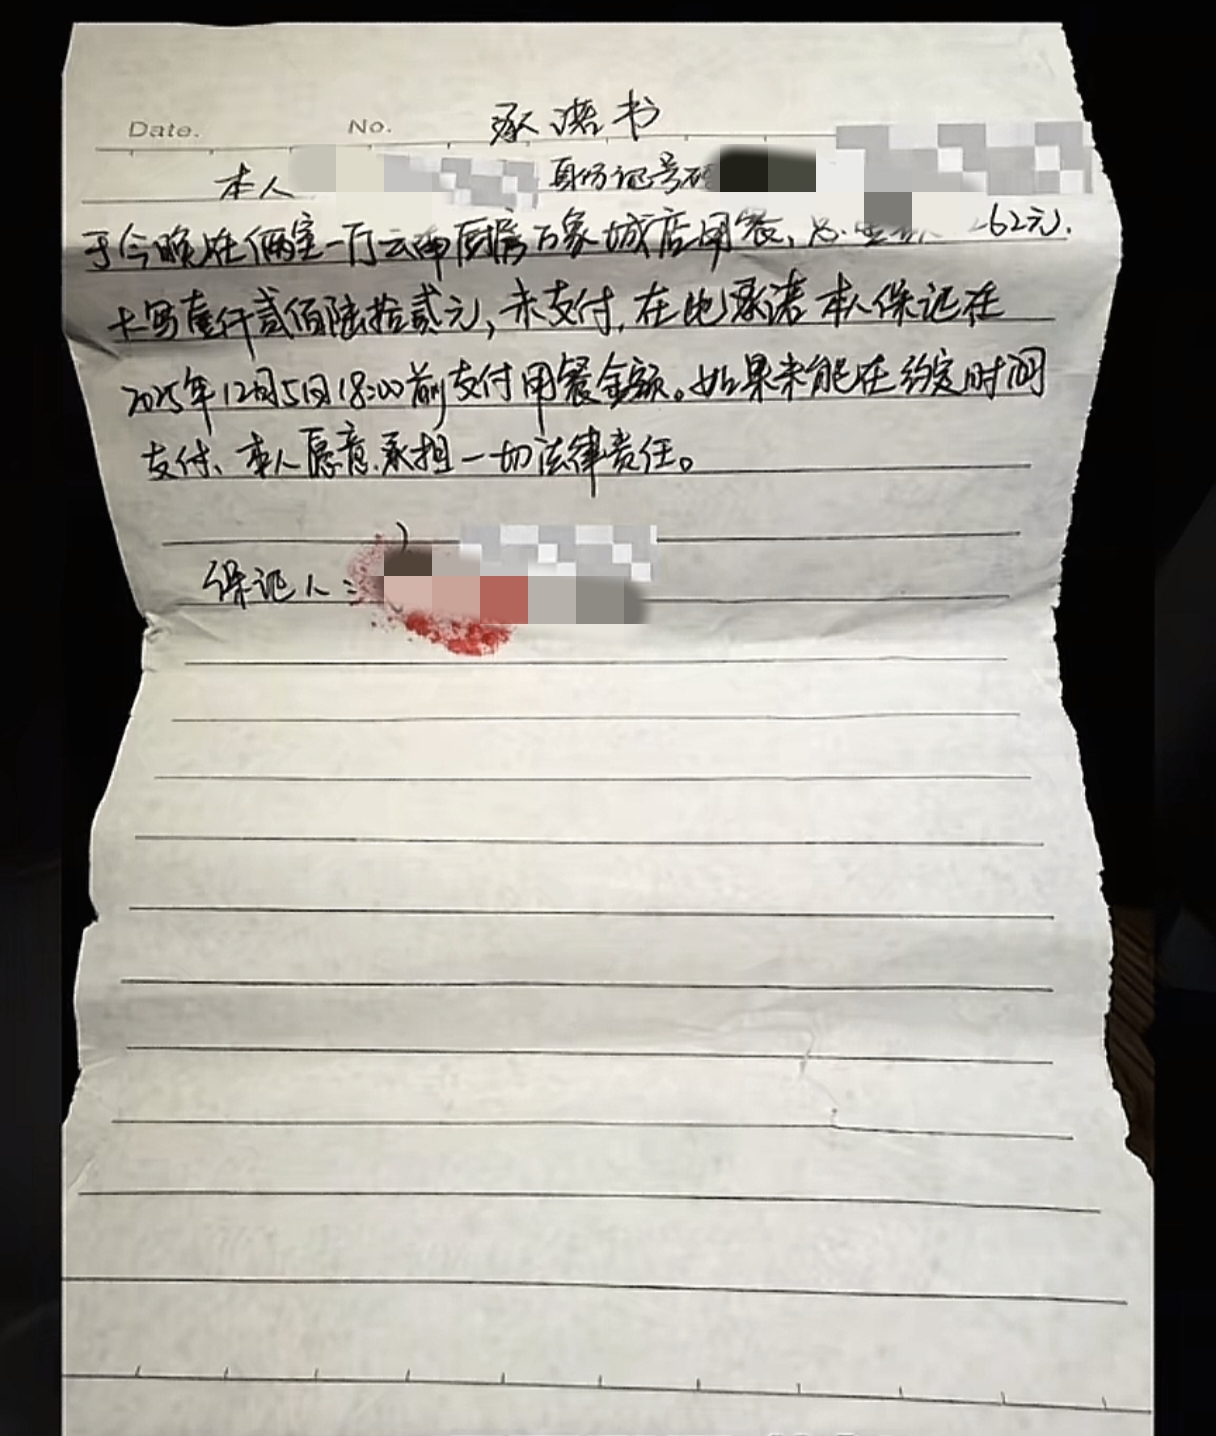 Date. No. 承诺书
本人 身份证号码
于今晚在俩室一厅云南厨房万家城店用餐、总 62元.
大写壹仟贰佰陆拾贰元,未支付,在此承诺本人保证在
2025年12月5日18:00前支付用餐金额。如果未能在约定时间
支付、本人愿意承担一切法律责任。
保证人: